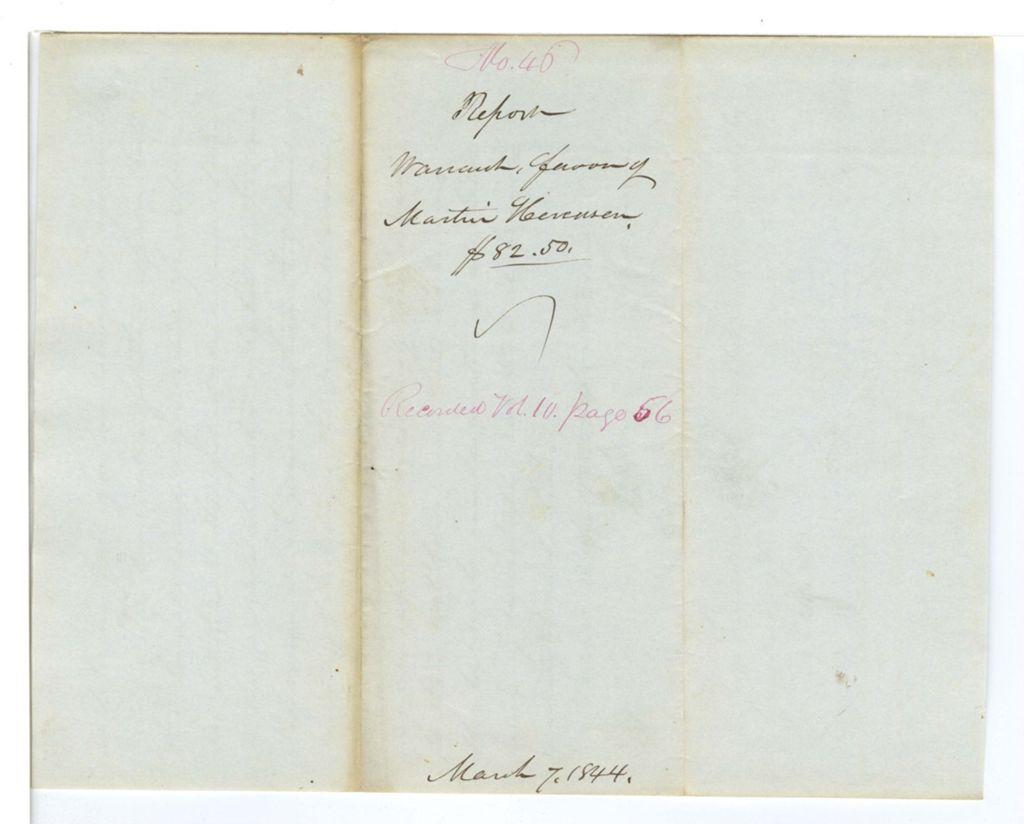 No. 46
Report
Warrant, favor of
Martin
$82.50.
Recorded Vol. 10. page 56
March 7. 1844.